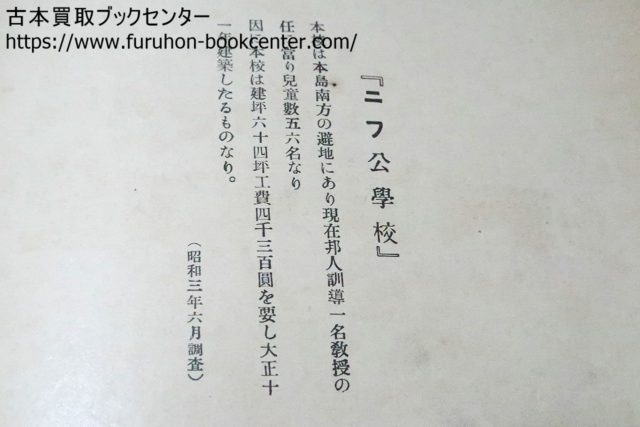 古本買取ブックセンター
https://www.furuhon-bookcenter.com/
『ニフ公學校』
本校は本島南方の避地にあり現在邦人訓導一名敎授の
任に當り兒童數五六名なり
因に本校は建坪六十四坪工費四千三百圓を要し大正十
一年建築したるものなり。
（昭和三年六月調査）